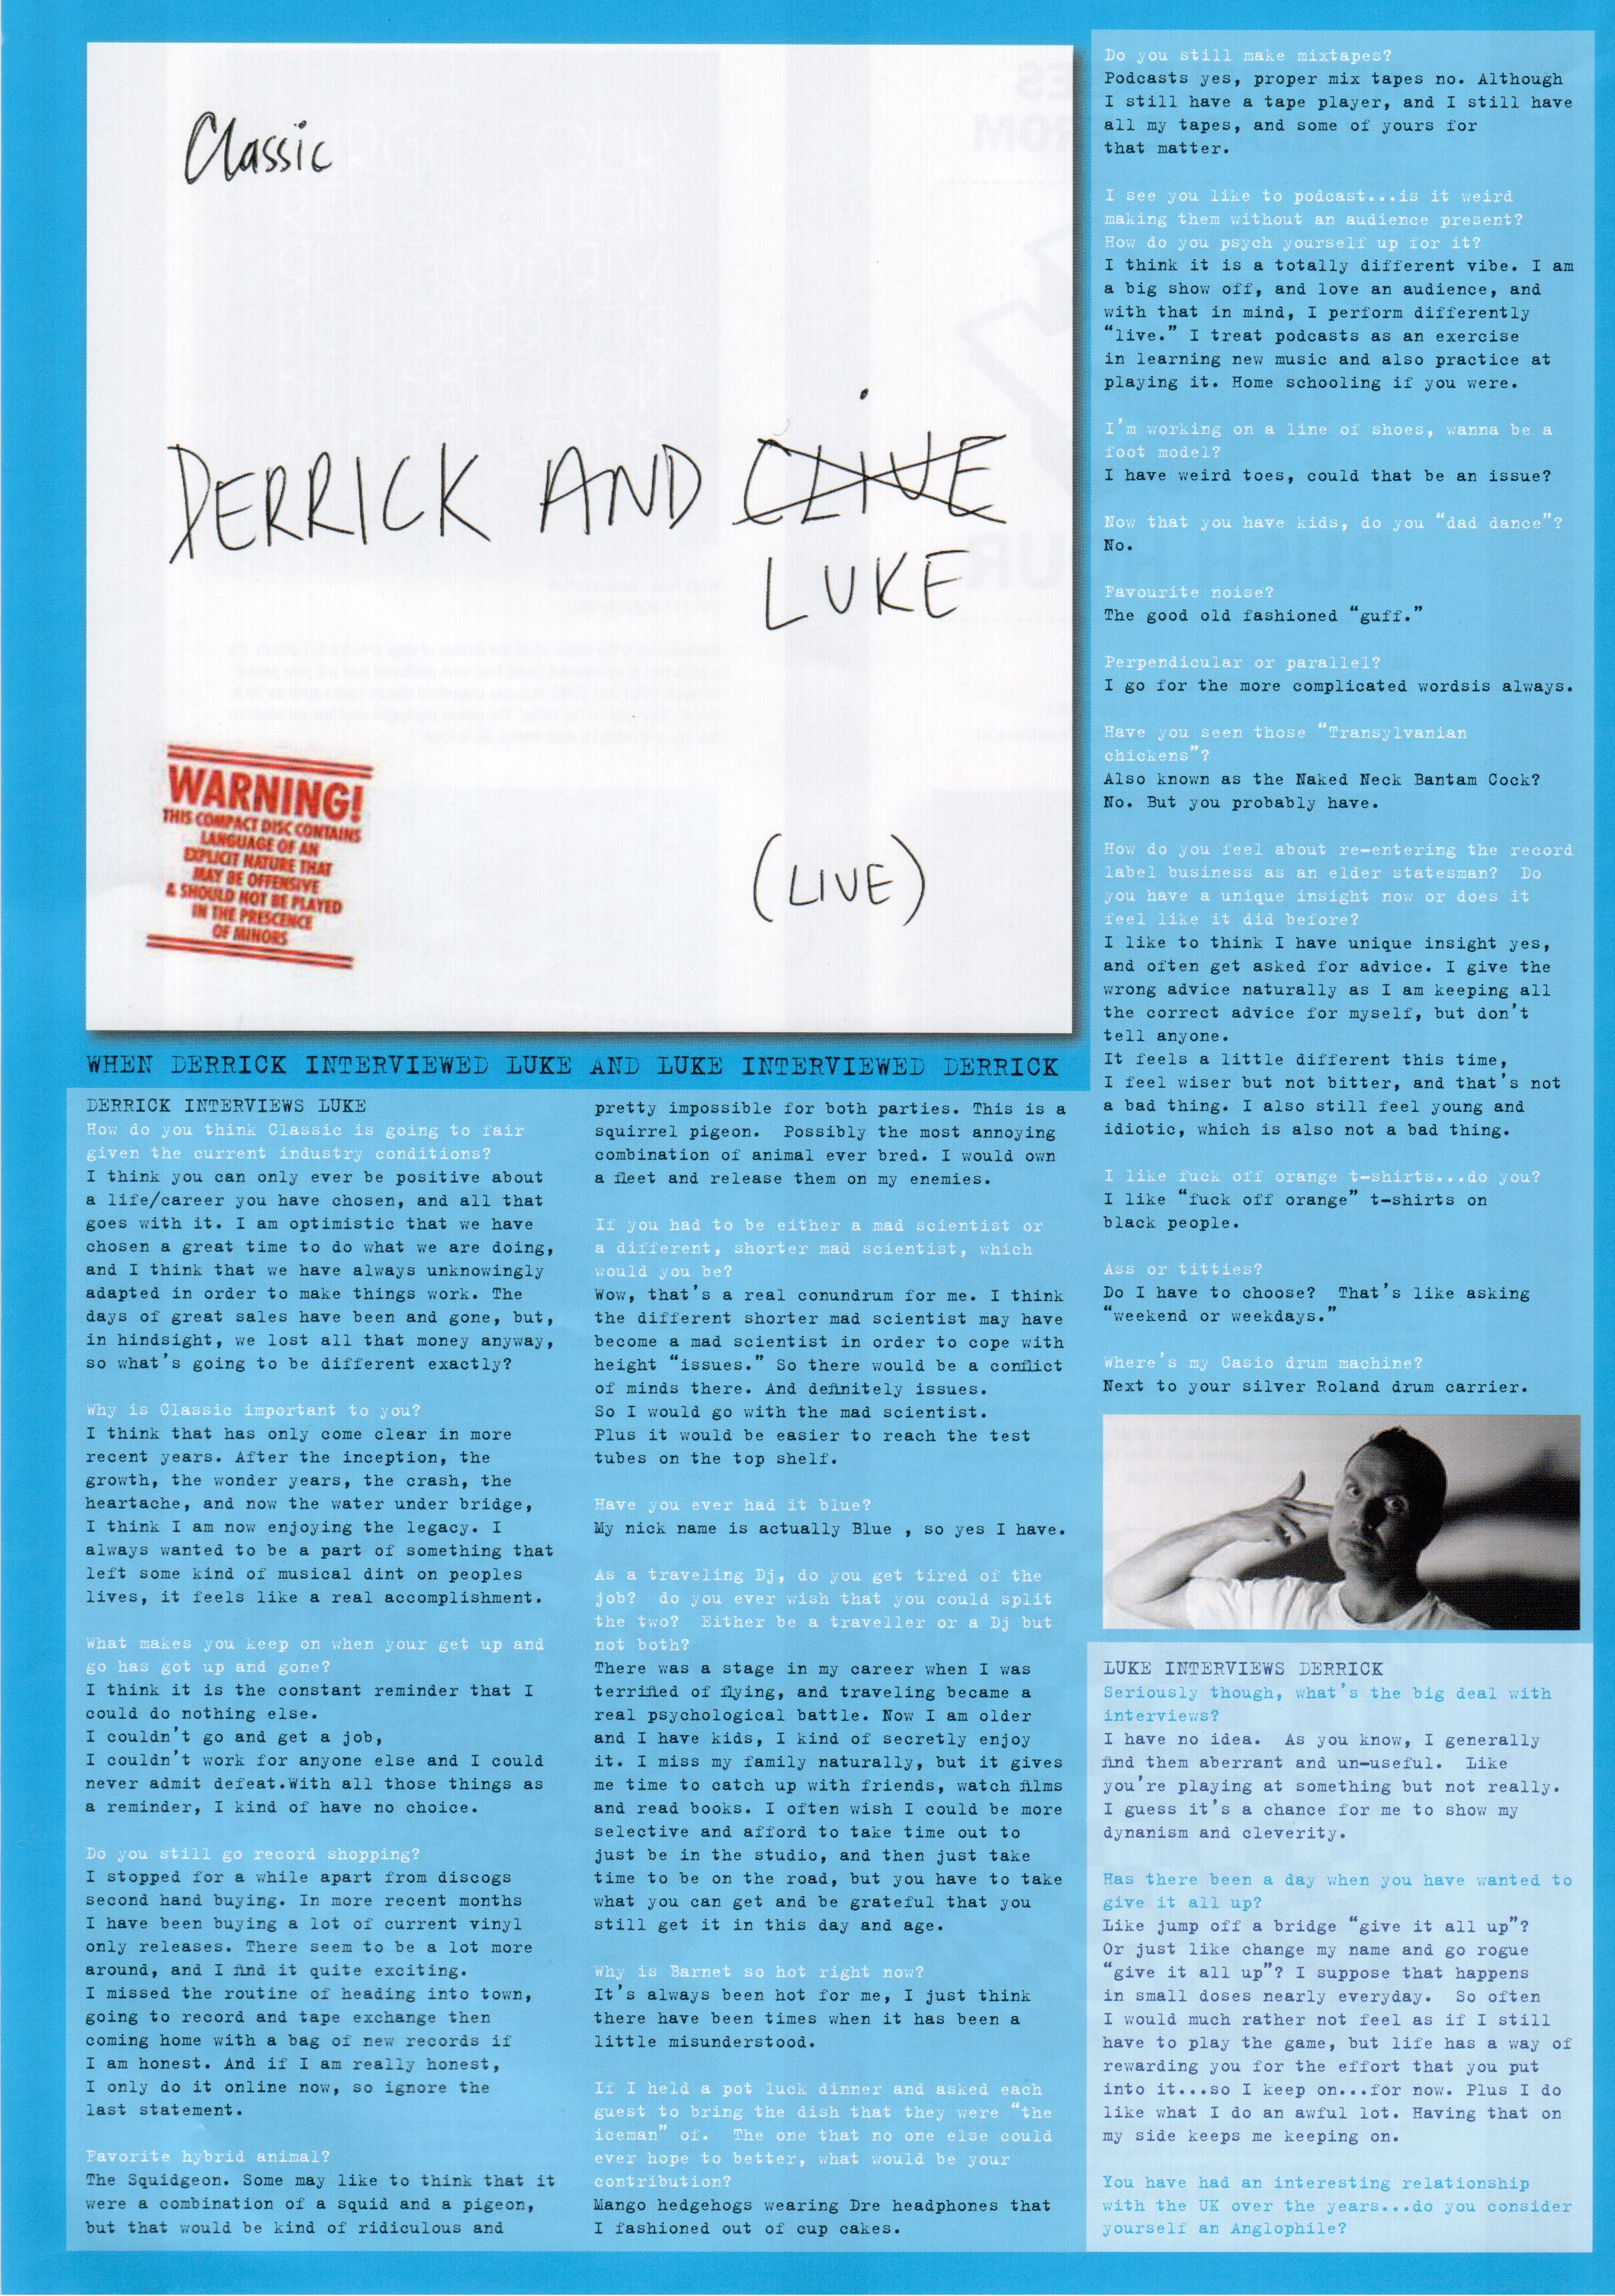 Classic
DERRICK AND CLIVE
LUKE
WARNING!
THIS COMPACT DISC CONTAINS
LANGUAGE OF AN
EXPLICIT NATURE THAT
MAY BE OFFENSIVE
& SHOULD NOT BE PLAYED
IN THE PRESCENCE
OF MINORS
(LIVE)
WHEN DERRICK INTERVIEWED LUKE AND LUKE INTERVIEWED DERRICK
DERRICK INTERVIEWS LUKE
How do you think Classic is going to fair
given the current industry conditions?
I think you can only ever be positive about
a life/career you have chosen, and all that
goes with it. I am optimistic that we have
chosen a great time to do what we are doing,
and I think that we have always unknowingly
adapted in order to make things work. The
days of great sales have been and gone, but,
in hindsight, we lost all that money anyway,
so what's going to be different exactly?
Why is Classic important to you?
I think that has only come clear in more
recent years. After the inception, the
growth, the wonder years, the crash, the
heartache, and now the water under bridge,
I think I am now enjoying the legacy. I
always wanted to be a part of something that
left some kind of musical dint on peoples
lives, it feels like a real accomplishment.
What makes you keep on when your get up and
go has got up and gone?
I think it is the constant reminder that I
could do nothing else.
I couldn't go and get a job,
I couldn't work for anyone else and I could
never admit defeat.With all those things as
a reminder, I kind of have no choice.
Do you still go record shopping?
I stopped for a while apart from discogs
second hand buying. In more recent months
I have been buying a lot of current vinyl
only releases. There seem to be a lot more
around, and I find it quite exciting.
I missed the routine of heading into town,
going to record and tape exchange then
coming home with a bag of new records if
I am honest. And if I am really honest,
I only do it online now, so ignore the
last statement.
Favorite hybrid animal?
The Squidgeon. Some may like to think that it
were a combination of a squid and a pigeon,
but that would be kind of ridiculous and
pretty impossible for both parties. This is a
squirrel pigeon.  Possibly the most annoying
combination of animal ever bred. I would own
a fleet and release them on my enemies.
If you had to be either a mad scientist or
a different, shorter mad scientist, which
would you be?
Wow, that's a real conundrum for me. I think
the different shorter mad scientist may have
become a mad scientist in order to cope with
height "issues." So there would be a conflict
of minds there. And definitely issues.
So I would go with the mad scientist.
Plus it would be easier to reach the test
tubes on the top shelf.
Have you ever had it blue?
My nick name is actually Blue , so yes I have.
As a traveling Dj, do you get tired of the
job?  do you ever wish that you could split
the two?  Either be a traveller or a Dj but
not both?
There was a stage in my career when I was
terrified of flying, and traveling became a
real psychological battle. Now I am older
and I have kids, I kind of secretly enjoy
it. I miss my family naturally, but it gives
me time to catch up with friends, watch films
and read books. I often wish I could be more
selective and afford to take time out to
just be in the studio, and then just take
time to be on the road, but you have to take
what you can get and be grateful that you
still get it in this day and age.
Why is Barnet so hot right now?
It's always been hot for me, I just think
there have been times when it has been a
little misunderstood.
If I held a pot luck dinner and asked each
guest to bring the dish that they were "the
iceman" of.  The one that no one else could
ever hope to better, what would be your
contribution?
Mango hedgehogs wearing Dre headphones that
I fashioned out of cup cakes.
Do you still make mixtapes?
Podcasts yes, proper mix tapes no. Although
I still have a tape player, and I still have
all my tapes, and some of yours for
that matter.
I see you like to podcast...is it weird
making them without an audience present?
How do you psych yourself up for it?
I think it is a totally different vibe. I am
a big show off, and love an audience, and
with that in mind, I perform differently
"live." I treat podcasts as an exercise
in learning new music and also practice at
playing it. Home schooling if you were.
I'm working on a line of shoes, wanna be a
foot model?
I have weird toes, could that be an issue?
Now that you have kids, do you "dad dance"?
No.
Favourite noise?
The good old fashioned "guff."
Perpendicular or parallel?
I go for the more complicated wordsis always.
Have you seen those "Transylvanian
chickens"?
Also known as the Naked Neck Bantam Cock?
No. But you probably have.
How do you feel about re-entering the record
label business as an elder statesman?  Do
you have a unique insight now or does it
feel like it did before?
I like to think I have unique insight yes,
and often get asked for advice. I give the
wrong advice naturally as I am keeping all
the correct advice for myself, but don't
tell anyone.
It feels a little different this time,
I feel wiser but not bitter, and that's not
a bad thing. I also still feel young and
idiotic, which is also not a bad thing.
I like fuck off orange t-shirts...do you?
I like "fuck off orange" t-shirts on
black people.
Ass or titties?
Do I have to choose?  That's like asking
"weekend or weekdays."
Where's my Casio drum machine?
Next to your silver Roland drum carrier.
LUKE INTERVIEWS DERRICK
Seriously though, what's the big deal with
interviews?
I have no idea.  As you know, I generally
find them aberrant and un-useful.  Like
you're playing at something but not really.
I guess it's a chance for me to show my
dynanism and cleverity.
Has there been a day when you have wanted to
give it all up?
Like jump off a bridge "give it all up"?
Or just like change my name and go rogue
"give it all up"? I suppose that happens
in small doses nearly everyday.  So often
I would much rather not feel as if I still
have to play the game, but life has a way of
rewarding you for the effort that you put
into it...so I keep on...for now. Plus I do
like what I do an awful lot. Having that on
my side keeps me keeping on.
You have had an interesting relationship
with the UK over the years...do you consider
yourself an Anglophile?